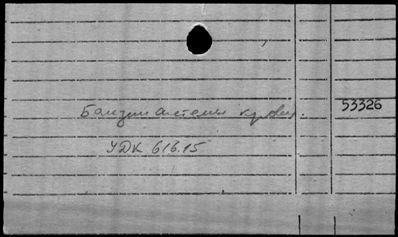 системы крови. 53326
УДК 616.15